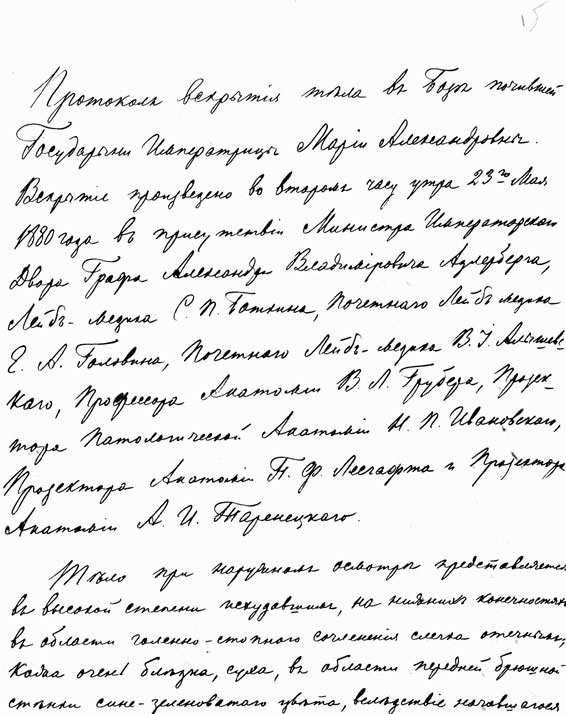 15
Протоколъ вскрытія тѣла въ Бозѣ почившей
Государыни Императрицы Маріи Александровны.
Вскрытіе произведено во второмъ часу утра 23го Мая
1880 года въ присутствіи Министра Императорскаго
Двора Графа Александра Владиміровича Адлерберга,
Лейбъ-медика С. П. Боткина, Почетнаго Лейбъ медика
Е. А. Головина, Почетнаго Лейбъ-медика В. І. Алышевс-
каго, Профессора Анатоміи В. Л. Грубера, Прозек-
тора Патологической Анатоміи Н. П. Ивановскаго,
Прозектора Анатоміи П. Ф. Лесгафта и Прозектора
Анатоміи А. И. Таренецкаго.
Тѣло при наружномъ осмотрѣ представляется
въ высокой степени исхудавшимъ, на нижнихъ конечностяхъ
въ области голенно-стопнаго сочлененія слегка отечнымъ,
кожа очень блѣдна, суха, въ области передней брюшной
стѣнки сине-зеленоватаго цвѣта, вслѣдствіе начавшагося